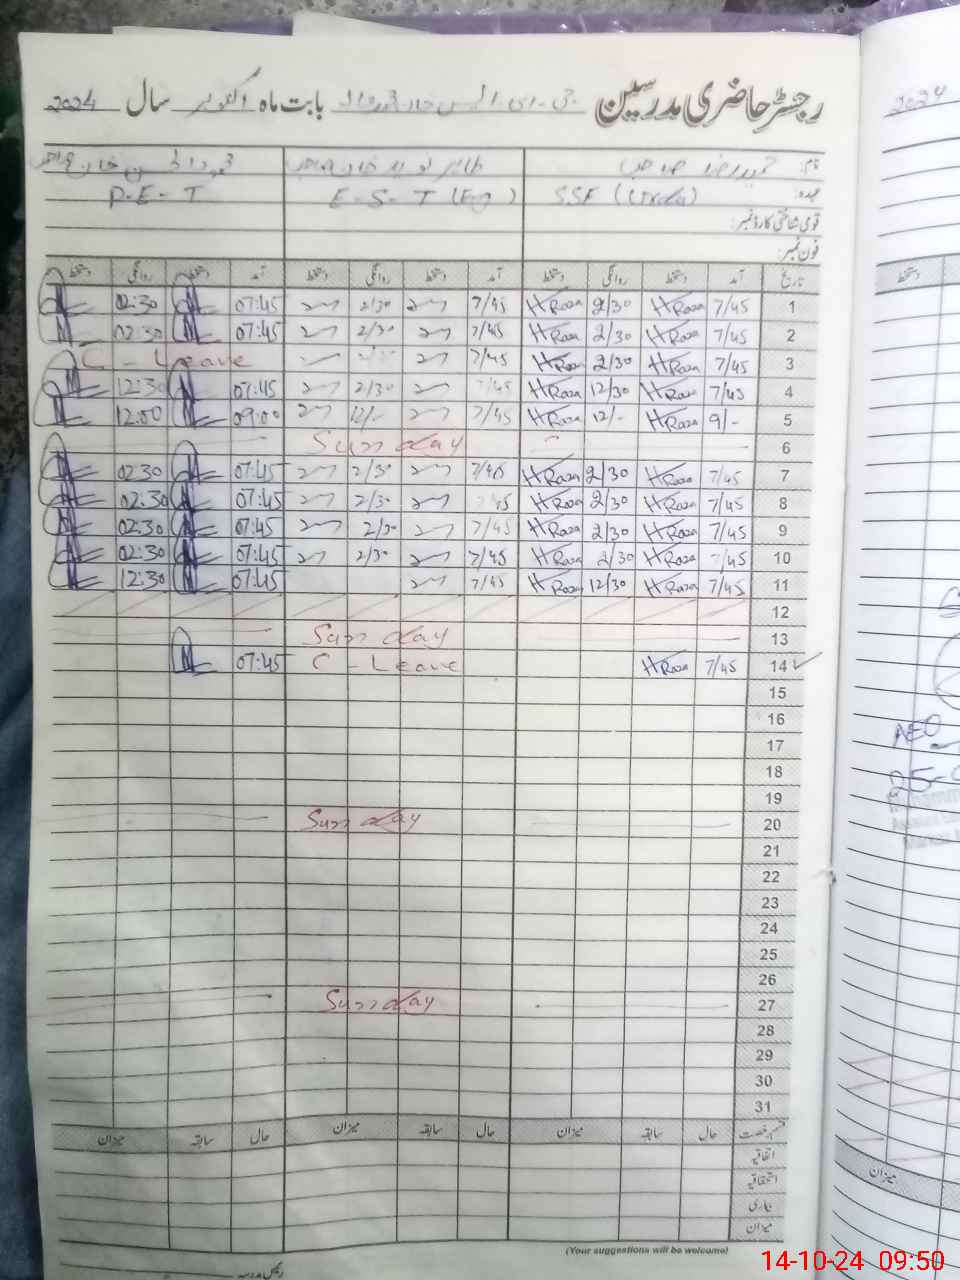 رجسٹر حاضری مدرسین بابت ماہ اکتوبر سال 2024
نام:
عہدہ: SSE E-S-T (Eng) P-E-T
قومی شناختی کارڈ نمبر:
فون نمبر:
تاریخ آمد دستخط روانگی دستخط آمد دستخط روانگی دستخط آمد دستخط روانگی دستخط
1 7/45 HRaza 2/30 HRaza 7/45 2/30 07:45 02:30
2 7/45 HRaza 2/30 HRaza 7/45 2/30 07:45 02:30
3 7/45 HRaza 2/30 HRaza 7/45 C - Leave
4 7/45 HRaza 12/30 HRaza 7/45 2/30 07:45 12:30
5 9/- HRaza 12/- HRaza 7/45 12/- 09:00 12:00
6 Sunday
7 7/45 HRaza 2/30 HRaza 7/45 2/30 07:45 02:30
8 7/45 HRaza 2/30 HRaza 45 2/30 07:45 02:30
9 7/45 HRaza 2/30 HRaza 7/45 2/30 07:45 02:30
10 7/45 HRaza 2/30 HRaza 7/45 2/30 07:45 02:30
11 7/45 HRaza 12/30 HRaza 7/45 07:45 12:30
12
13 Sunday
14 7/45 HRaza C - Leave 07:45
15
16
17
18
19
20 Sunday
21
22
23
24
25
26
27 Sunday
28
29
30
31
قسم رخصت حال سابقہ میزان حال سابقہ میزان حال سابقہ میزان
اتفاقیہ
استحقاقیہ
بیماری
میزان
(Your suggestions will be welcome)
رئیس مدرسہ
2024
AEO
میزان
14-10-24 09:50